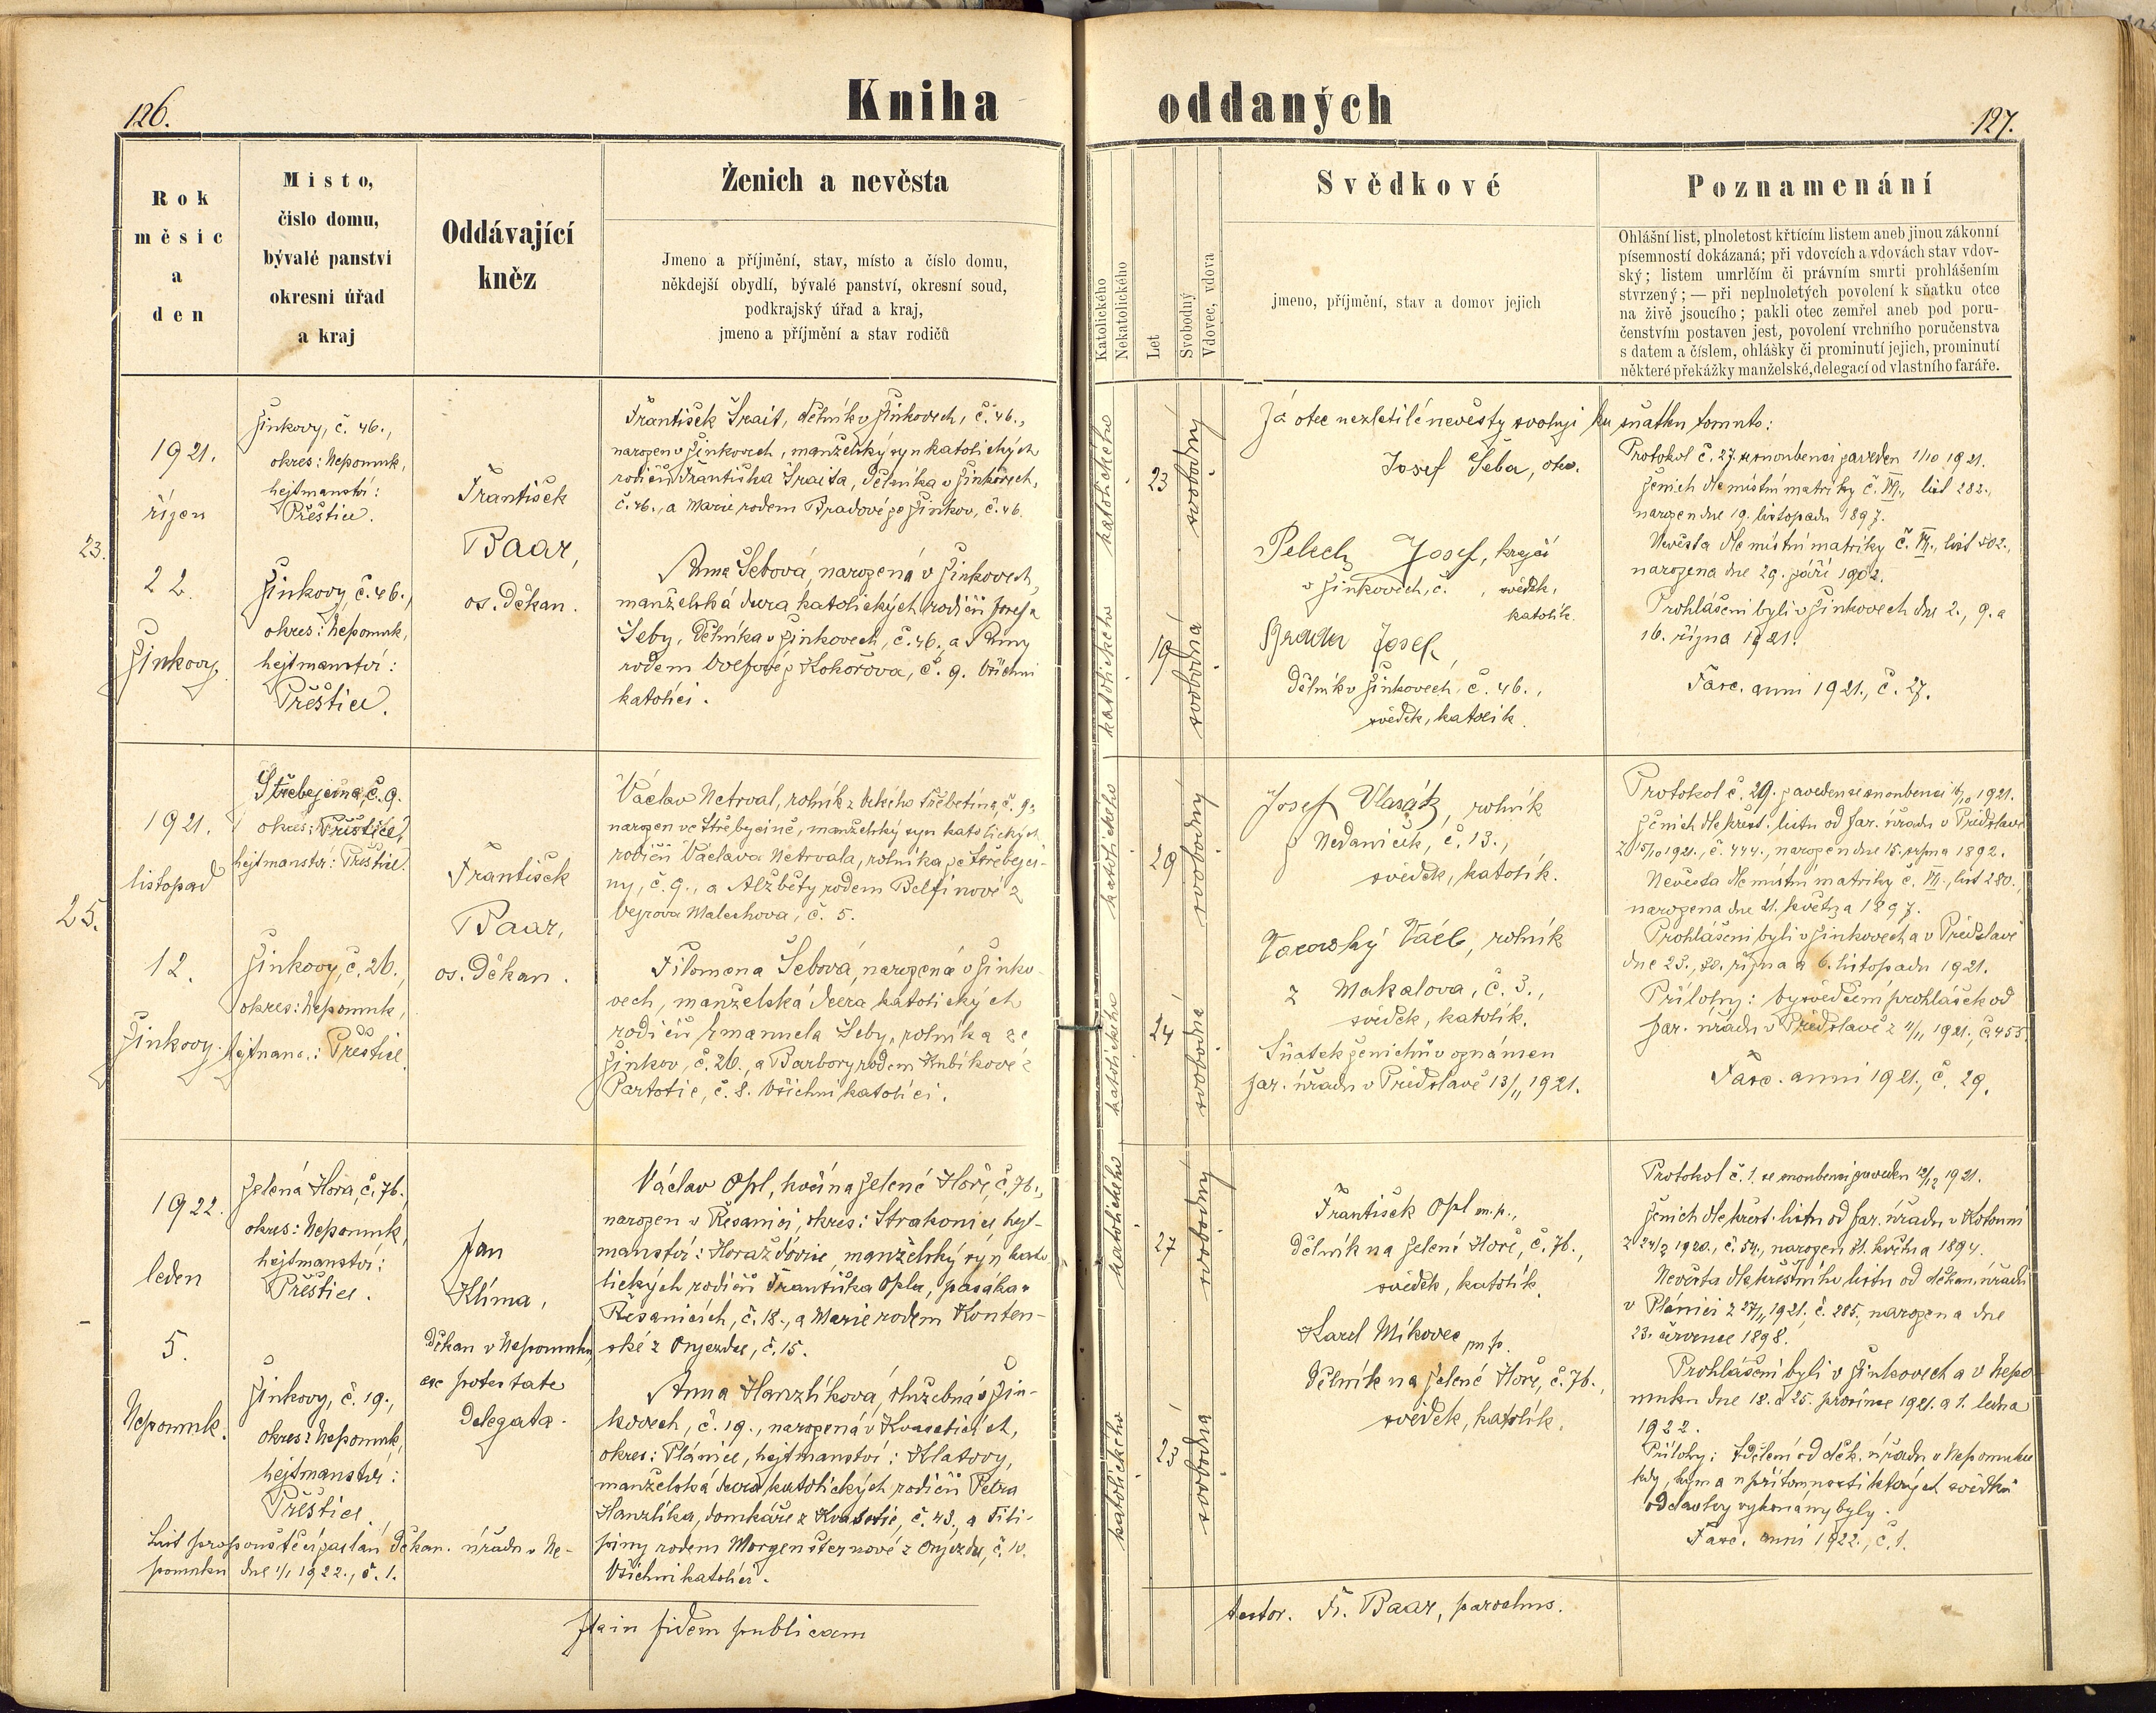 126.
Kniha
Rok
měsíc
a
den
Místo,
číslo domu,
bývalé panství
okresní úřad
a kraj
Oddávající
kněz
Ženich a nevěsta
Jmeno a příjmění, stav, místo a číslo domu,
někdejší obydlí, bývalé panství, okresní soud,
podkrajský úřad a kraj,
jmeno a příjmění a stav rodičů
23.
1921.
říjen
22.
Žinkovy.
Žinkovy, č. 46.,
okres: Nepomuk,
hejtmanství:
Přeštice.
Žinkovy č. 46.,
okres: Nepomuk,
hejtmanství:
Přeštice.
František
Baar,
os. děkan.
František Trait, dělník v Žinkovech, č. 46.,
narozen v Žinkovech, manželský syn katolických
rodičů Františka Traita, dělníka v Žinkovech,
č. 46., a Marie rodem Bradové ze Žinkov, č. 46.
Anna Šebová, narozená v Žinkovech,
manželská dcera katolických rodičů Josefa
Šeby, dělníka v Žinkovech, č. 46., a Anny
rodem z Kokořova, č. 9. Všichni
katolíci.
25.
1921.
listopad
12.
Žinkovy.
Střebejčina, č. 9.
okres: Přeštice,
hejtmanství: Přeštice.
Žinkovy, č. 26.,
okres: Nepomuk,
hejtmans.: Přeštice.
František
Baar,
os. děkan.
Václav Netrval, rolník z č. 9.,
narozen ve Střebyčině, manželský syn katolických
rodičů Václava Netrvala, rolníka ze Střebejči-
ny, č. 9., a Alžběty rodem Belfínové z
Malechova, č. 5.
Filomena Šebová, narozená v Žinko-
vech, manželská dcera katolických
rodičů Emanuela Šeby, rolníka ze
Žinkov, č. 26., a Barbory rodem Kubíkové z
Partoltic, č. 8. Všichni katolíci.
1922.
leden
5.
Nepomuk.
Zelená Hora, č. 76.,
okres: Nepomuk,
hejtmanství:
Přeštice.
Žinkovy, č. 19.,
okres: Nepomuk,
hejtmanství:
Přeštice.
Jan
Klíma,
děkan v Nepomuku
ex potestate
delegata.
Václav Opl, kočí na Zelené Hoře, č. 76.,
narozen v Řesanici, okres: Strakonice hejt-
manství: Horažďovice, manželský syn kato
lických rodičů Františka Opla, pasáka v
Řesanicích, č. 18., a Marie rodem Konten-
ské z Onjezdce, č. 15.
Anna Hanzlíková, služebná v Žin-
kovech, č. 19., narozená v Kvaseticích,
okres: Plánice, hejtmanství: Klatovy,
manželská dcera katolických rodičů Petra
Hanzlíka, domkáře z Kvasetic, č. 43., a Fili-
piny rodem Morgensternové z Onjezdu, č. 10.
Všichni katolíci.
List propouštěcí zaslán děkan. úřadu v Ne-
pomuku dne 1/1 1922., č. 1.
Ita in fidem publicam
oddaných
127.
Katolického
Nekatolického
Let
Svobodný
Vdovec, vdova
Svědkové
jmeno, příjmění, stav a domov jejich
Poznamenání
Ohlášní list, plnoletost křtícím listem aneb jinou zákonní
písemností dokázaná; při vdovcích a vdovách stav vdov-
ský; listem umrlčím či právním smrti prohlášením
stvrzený; — při neplnoletých povolení k sňatku otce
na živě jsoucího; pakli otec zemřel aneb pod poru-
čenstvím postaven jest, povolení vrchního poručenstva
s datem a číslem, ohlášky či prominutí jejich, prominutí
některé překážky manželské, delegací od vlastního faráře.
katolického
23
svobodný
katolického
19
svobodná
Já otec nezletilé nevěsty svoluji ku sňatku tomuto:
Josef Šeba, otec.
Pelech Josef, krejčí
v Žinkovech, č. , svědek,
katolík.
Josef,
dělník v Žinkovech, č. 46.,
svědek, katolík.
Protokol č. 27. zaveden 1/10 1921.
Ženich dle místní matriky č. VI., list 282.,
narozen dne 19. listopadu 1897.
Nevěsta dle místní matriky č. VI., list 302.,
narozena dne 29. září 1902.
Prohlášeni byli v Žinkovech dne 2., 9. a
16. října 1921.
Fasc. anni 1921., č. 27.
katolického
29
svobodný
katolického
24
svobodná
Josef Vlasák, rolník
z Nedaniček, č. 13.,
svědek, katolík.
Vacl., rolník
z Makalova, č. 3.,
svědek, katolík.
Sňatek ženichův oznámen
far. úřadu v Předslavě 13/11 1921.
Protokol č. 29. zaveden 16/10 1921.
Ženich dle křest. listu od far. úřadu v Předslavě
z 15/10 1921., č. 444., narozen dne 15. srpna 1892.
Nevěsta dle místní matriky č. VI., list 280.,
narozena dne 21. května 1897.
Prohlášeni byli v Žinkovech a v Předslavě
dne 23., 30. října a 6. listopadu 1921.
Přílohy: Vysvědčení prohlášek od
far. úřadu v Předslavě z 7/11 1921., č. 453.
Fasc. anni 1921., č. 29.
katolického
27
svobodný
katolického
23
svobodná
František Opl m.p.,
dělník na Zelené Hoře, č. 76.,
svědek, katolík.
Karel Míkovec m.p.
dělník na Zelené Hoře, č. 76.,
svědek, katolík.
Protokol č. 1. se snoubenci zaveden 12/12 1921.
Ženich dle křest. listu od far. úřadu v Kotouni
z 24/3 1920., č. 54., narozen 21. května 1894.
Nevěsta dle křestního listu od děkan. úřadu
v Plánici z 27/11 1921. č. 285, narozena dne
23. července 1898.
Prohlášeni byli v Žinkovech a v Nepo
muku dne 18. a 25. prosince 1921. a 1. ledna
1922.
Přílohy: Sdělení od děk. úřadu v Nepomuku
kdy, kým a v přítomnosti kterých svědků
oddavky vykonány byly.
Fasc. anni 1922., č. 1.
testor. Fr. Baar, parochus.